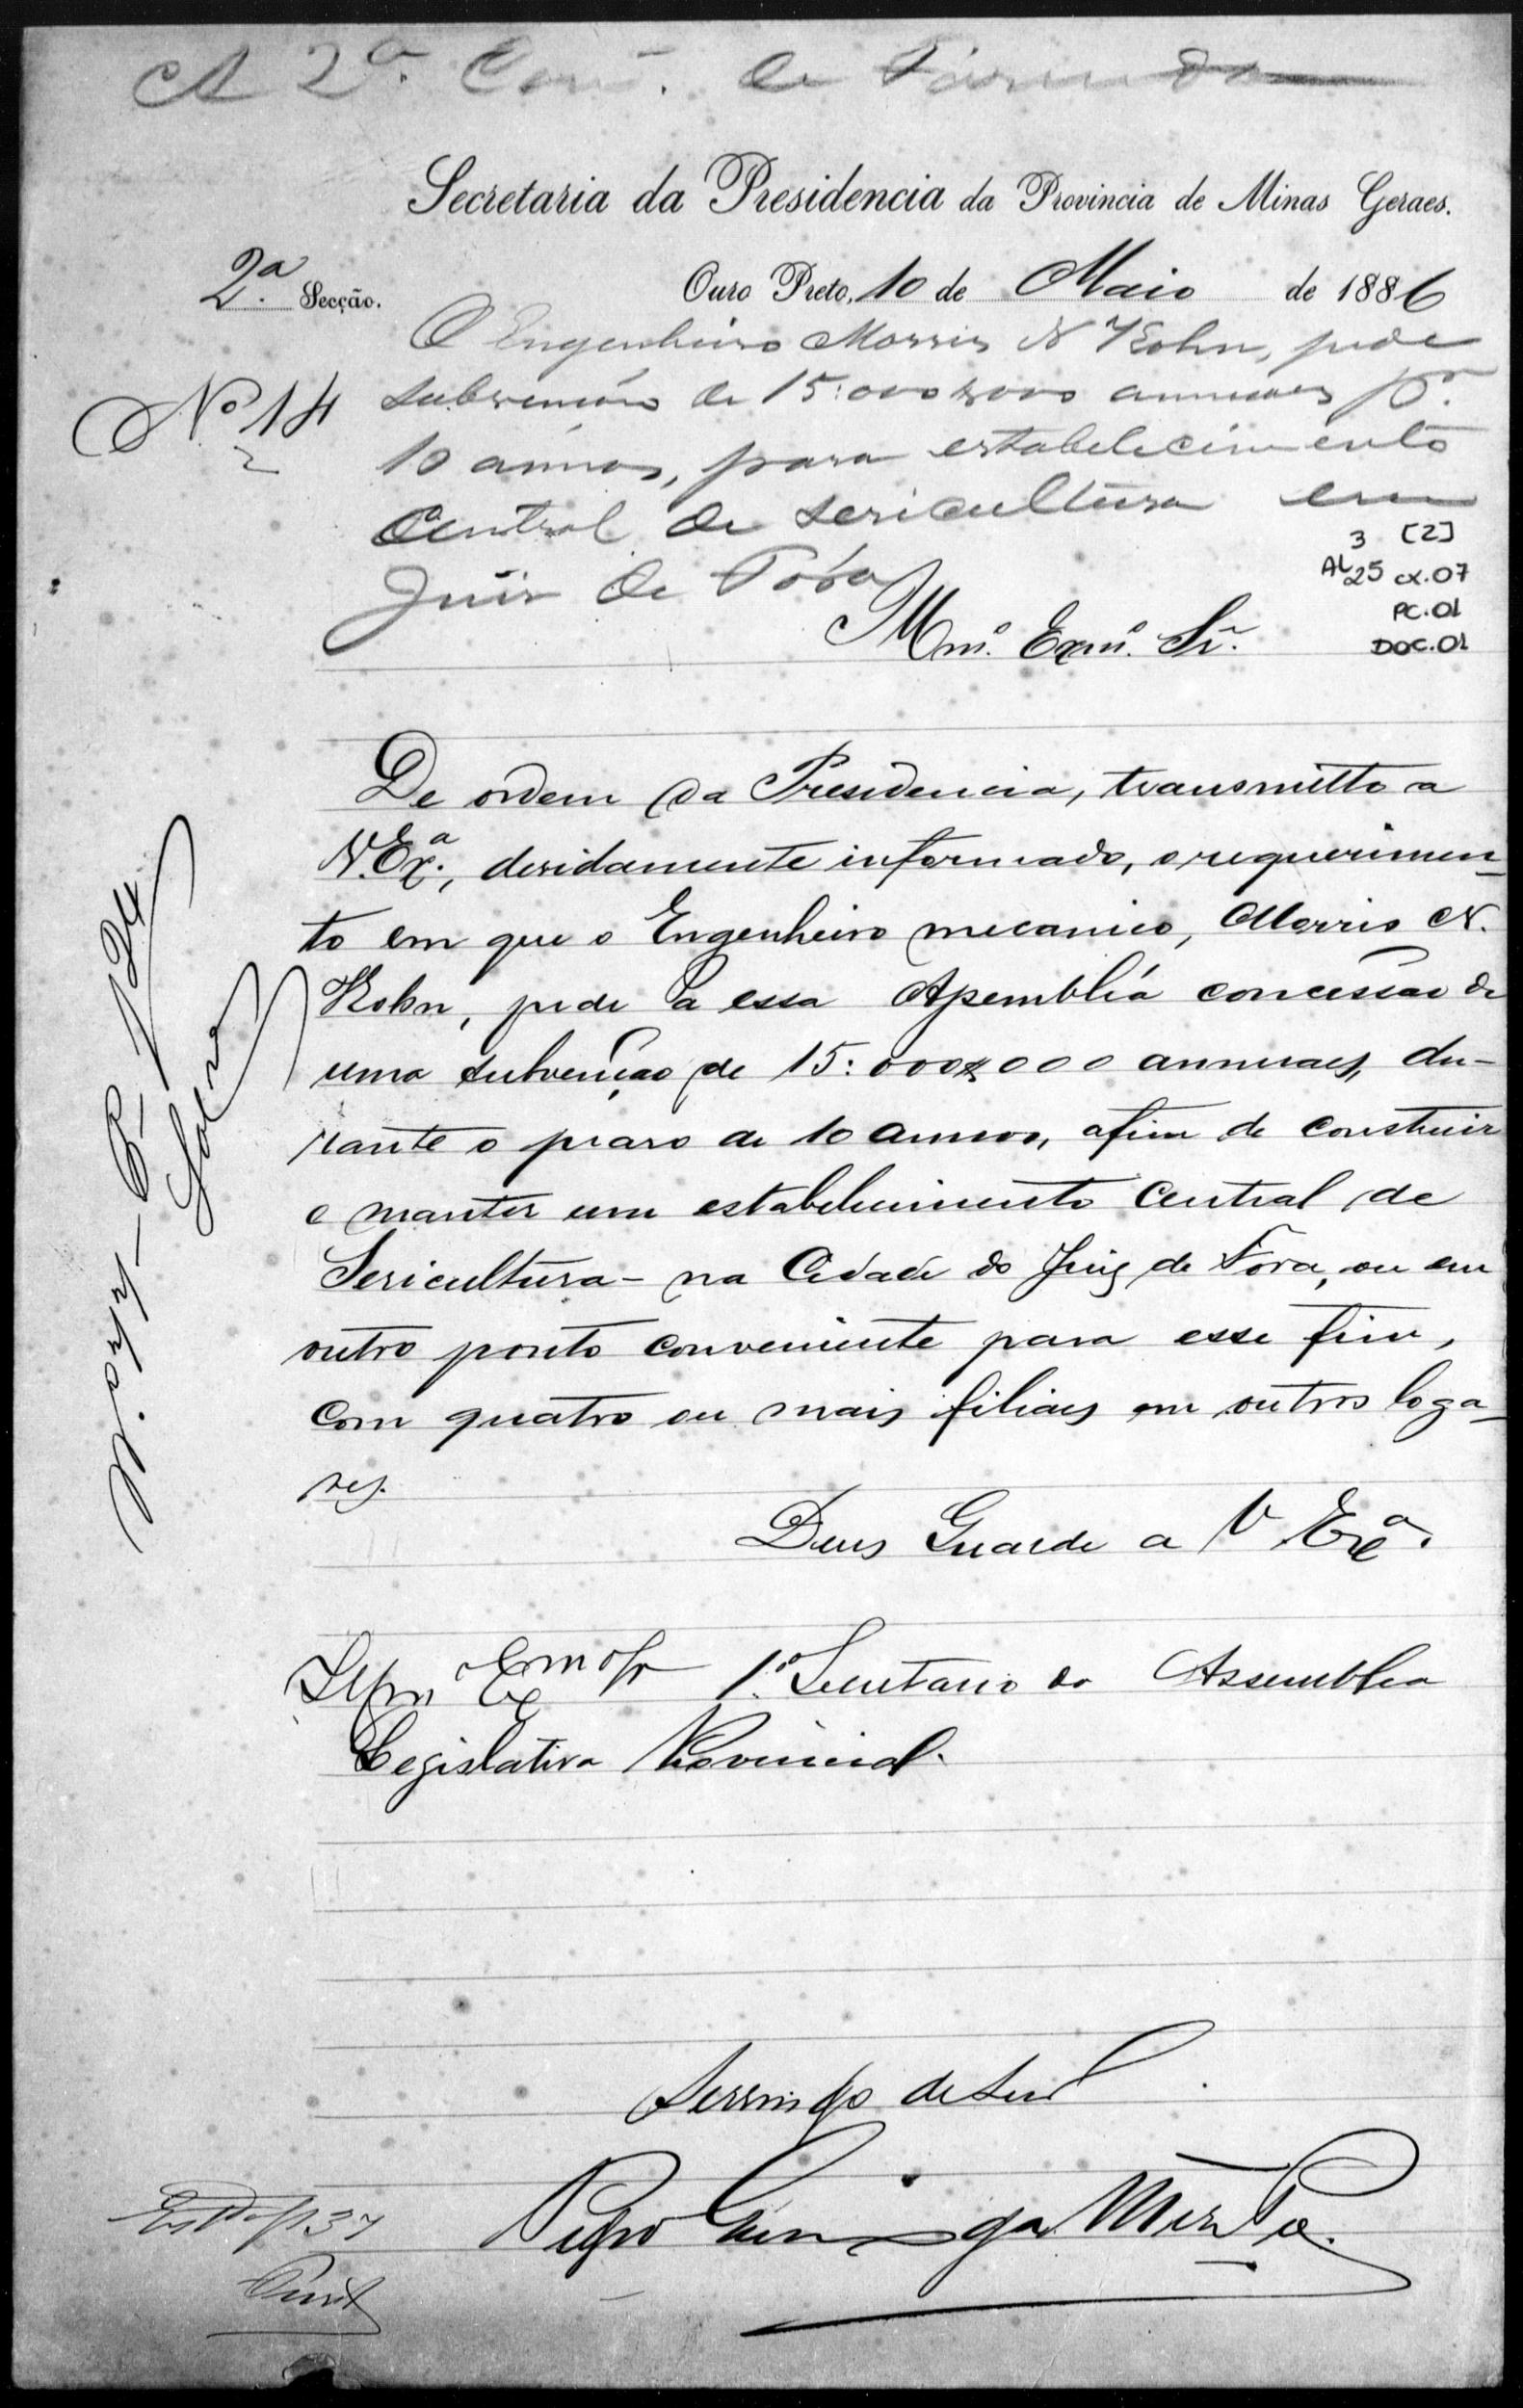 A 2ª Com. de Fazenda
Secretaria da Presidencia da Provincia de Minas Geraes.
2ª Secção.
Ouro Preto, 10 de Maio de 1886
O Engenheiro Morris N Kohn, pede
Nº 14
subvenção de 15:000$000 annuaes pr.
2
10 annos, para estabelecimento
Central de sericultura em
Juiz de Fóra
3 [2]
AL 25 cx.07
PC.01
DOC.01
Illmº. Exmº. Sr.
De ordem da Presidencia, transmitto a
V. Exª., devidamente informado, o requerimen-
to em que o Engenheiro mecanico, Morris N.
Kohn, pede a essa Assembléa concessão de
uma subvenção de 15:000$000 annuaes, du-
rante o praso de 10 annos, afim de construir
e manter um estabelecimento Central de
Sericultura - na Cidade do Juiz de Fora, ou em
outro ponto conveniente para esse fim,
com quatro ou mais filiaes em outros loga-
res.
Deus Guarde a V Exª.
1º Secretario da Assemblea
Legislativa Provincial.
Servindo de Secr
Pedro